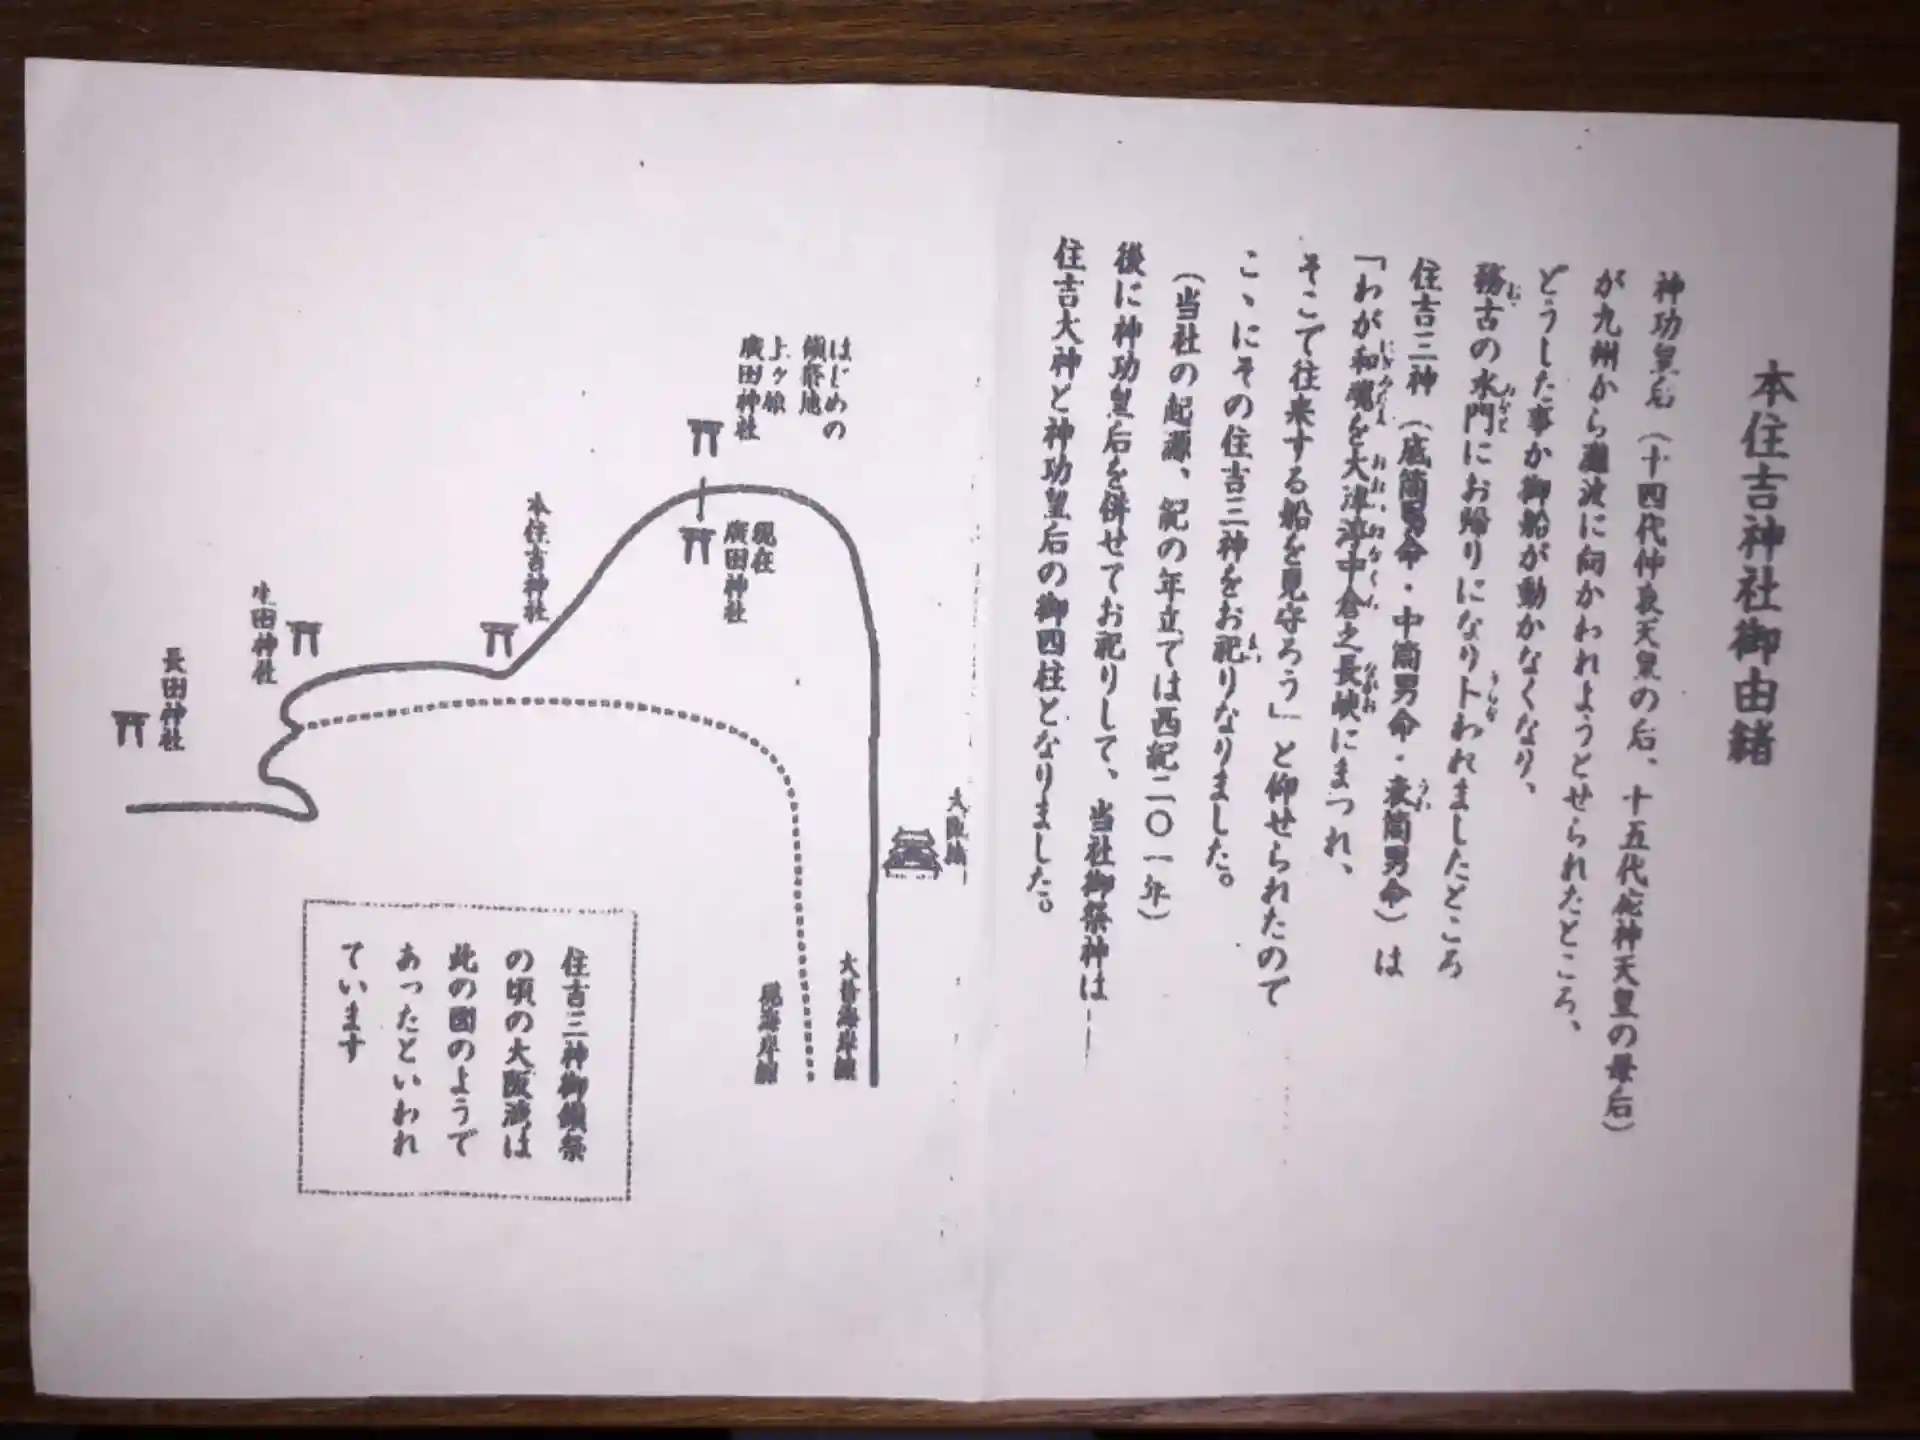 本住吉神社御由緒
神功皇后（十四代仲哀天皇の后、十五代応神天皇の母后）
が九州から難波に向かわれようとせられたところ、
どうした事か御船が動かなくなり、
務古の水門にお帰りになり卜われましたところ
住吉三神（底筒男命・中筒男命・表筒男命）は
「わが和魂を大津渟中倉之長峡にまつれ、
そこで往来する船を見守ろう」と仰せられたので
こゝにその住吉三神をお祀りなりました。
（当社の起源、紀の年立ては西紀二〇一年）
後に神功皇后を併せてお祀りして、当社御祭神は―
住吉大神と神功皇后の御四柱となりました。
はじめの
鎮祭地
上ヶ原
廣田神社
現在
廣田神社
本住吉神社
生田神社
長田神社
大阪城
大昔海岸線
現海岸線
住吉三神御鎮祭
の頃の大阪湾は
此の図のようで
あったといわれ
ています